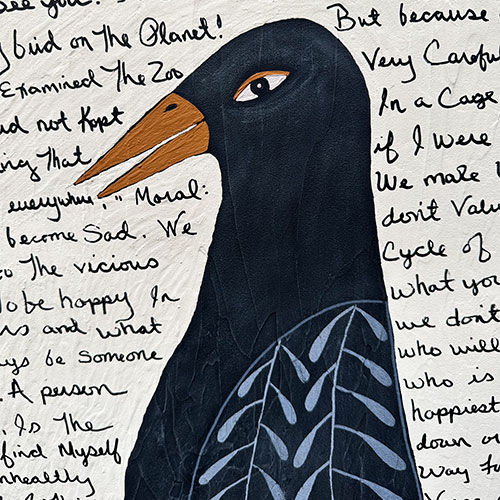 See you
bird on The Planet!
Examined The Zoo
not Kept
That
everywhere," Moral:
become Sad. We
The vicious
to be happy In
and what
be Someone
. A person
. Is The
find Myself
But because
Very Careful
In a Cage
if I Were
We make
don't Valu
Cycle of
what you
we don't
who will
who is
happiest
down or
Way